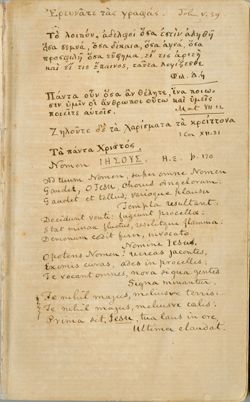 Ἐρευνᾶτε τὰς γραφάς. Joh. v. 39
Τὸ λοιπόν, ἀδελφοί ὅσα ἐστὶν ἀληθῆ
ὅσα σεμνά, ὅσα δίκαια, ὅσα ἁγνά, ὅσα
προσφιλῆ ὅσα εὔφημα, εἴ τις ἀρετὴ
καὶ εἴ τις ἔπαινος, ταῦτα λογίζεσθε.
Πάντα οὖν ὅσα ἂν θέλητε ἵνα ποιω-
σιν ὑμῖν οἱ ἄνθρωποι οὕτω καὶ ὑμεῖς
ποιεῖτε αὐτοῖς. Mat VII 12
Ζηλοῦτε δὲ τὰ χαρίσματα τὰ κρείττονα
1 Cor XII. 31
Τὰ πάντα Χριστός
Nomen ΙΗΣΟΥΣ. H.S. p. 170
Ad tuum Nomen, super omne Nomen
Gaudet, O Jesu chorus Angelorum:
Gaudet et tellus,
Templa resultant.
Decidunt venti: fugiunt procellae:
Stat minax fluctus, resilitque flamma:
Daemonum cedit furor, invocato
Nomine Jesus.
O potens Nomen! recreas jacentes,
Eximis curas, ades in procellis:
Te vocant omnes, nova signa gentes
Signa
Te nihil majus, meliusve terris:
Te nihil majus, meliusve caelis:
Prima sit, Jesu, tua laus in ore,
Ultima claudat.